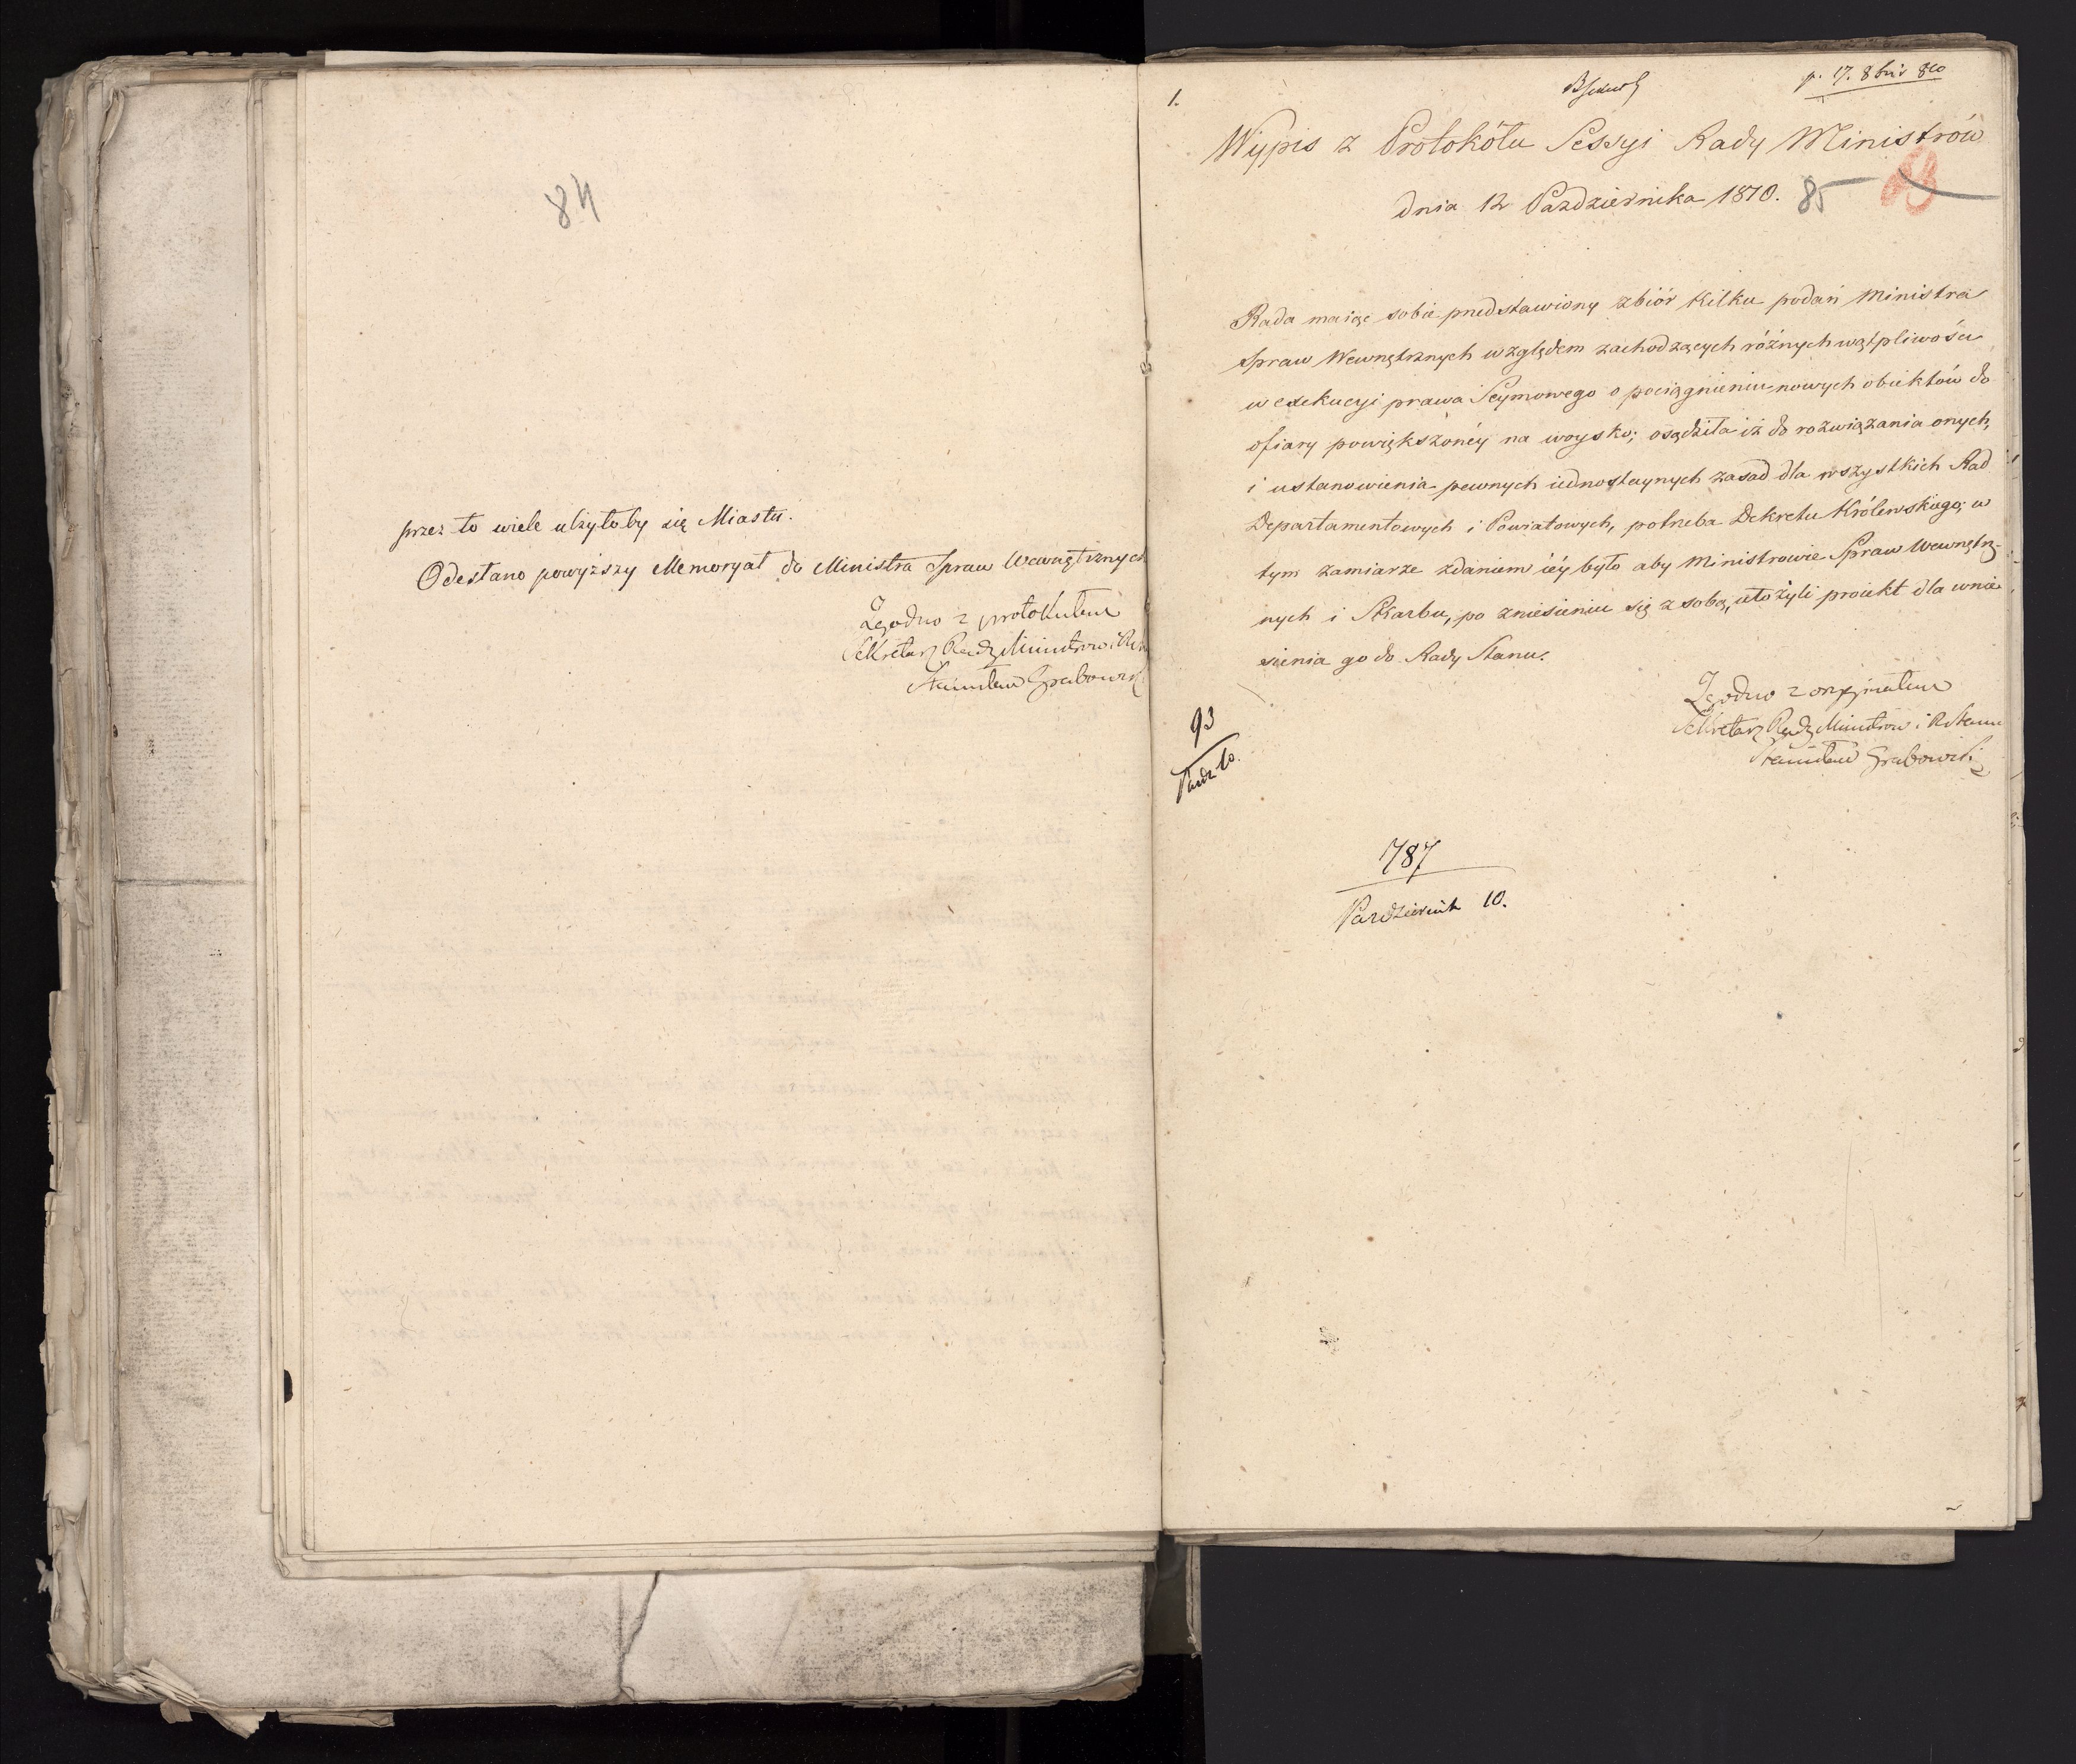 84
przez to wiele ulżyłoby się Miastu.
Odesłano powyższy Memoryał do Ministra Spraw Wewnętrznych
Zgodno z protokułem
Sekretarz Rady Ministrow i
Stanisław Grabowski
1.
p. 17. 8bris 810
Wypis z Protokółu Sessyi Rady Ministrów
dnia 12 Pazdziernika 1810. 85
Rada maiąc sobie przedstawiony zbiór kilku podań Ministra
Spraw Wewnętrznych względem zachodzących różnych wątpliwości
w exekucyi prawa Seymowego o pociągnieniu nowych obiektów do
ofiary powiększonéy na woysko; osądziła iż do rozwiązania onych,
i ustanowienia pewnych iednostaynych zasad dla wszystkich Rad
Departamentowych i Powiatowych, potrzeba Dekretu Królewskiego; w
tym zamiarze zdaniem iéy było aby Ministrowie Spraw Wewnętrz-
nych i Skarbu, po zniesieniu się z sobą, ułożyli proiekt dla wnie
sienia go do Rady Stanu.
Zgodno z oryginałem
Sekretarz Rady Ministrow i R Stanu
Stanisław Grabowski
93
Pazdz 10.
787
Pazdziernik 10.